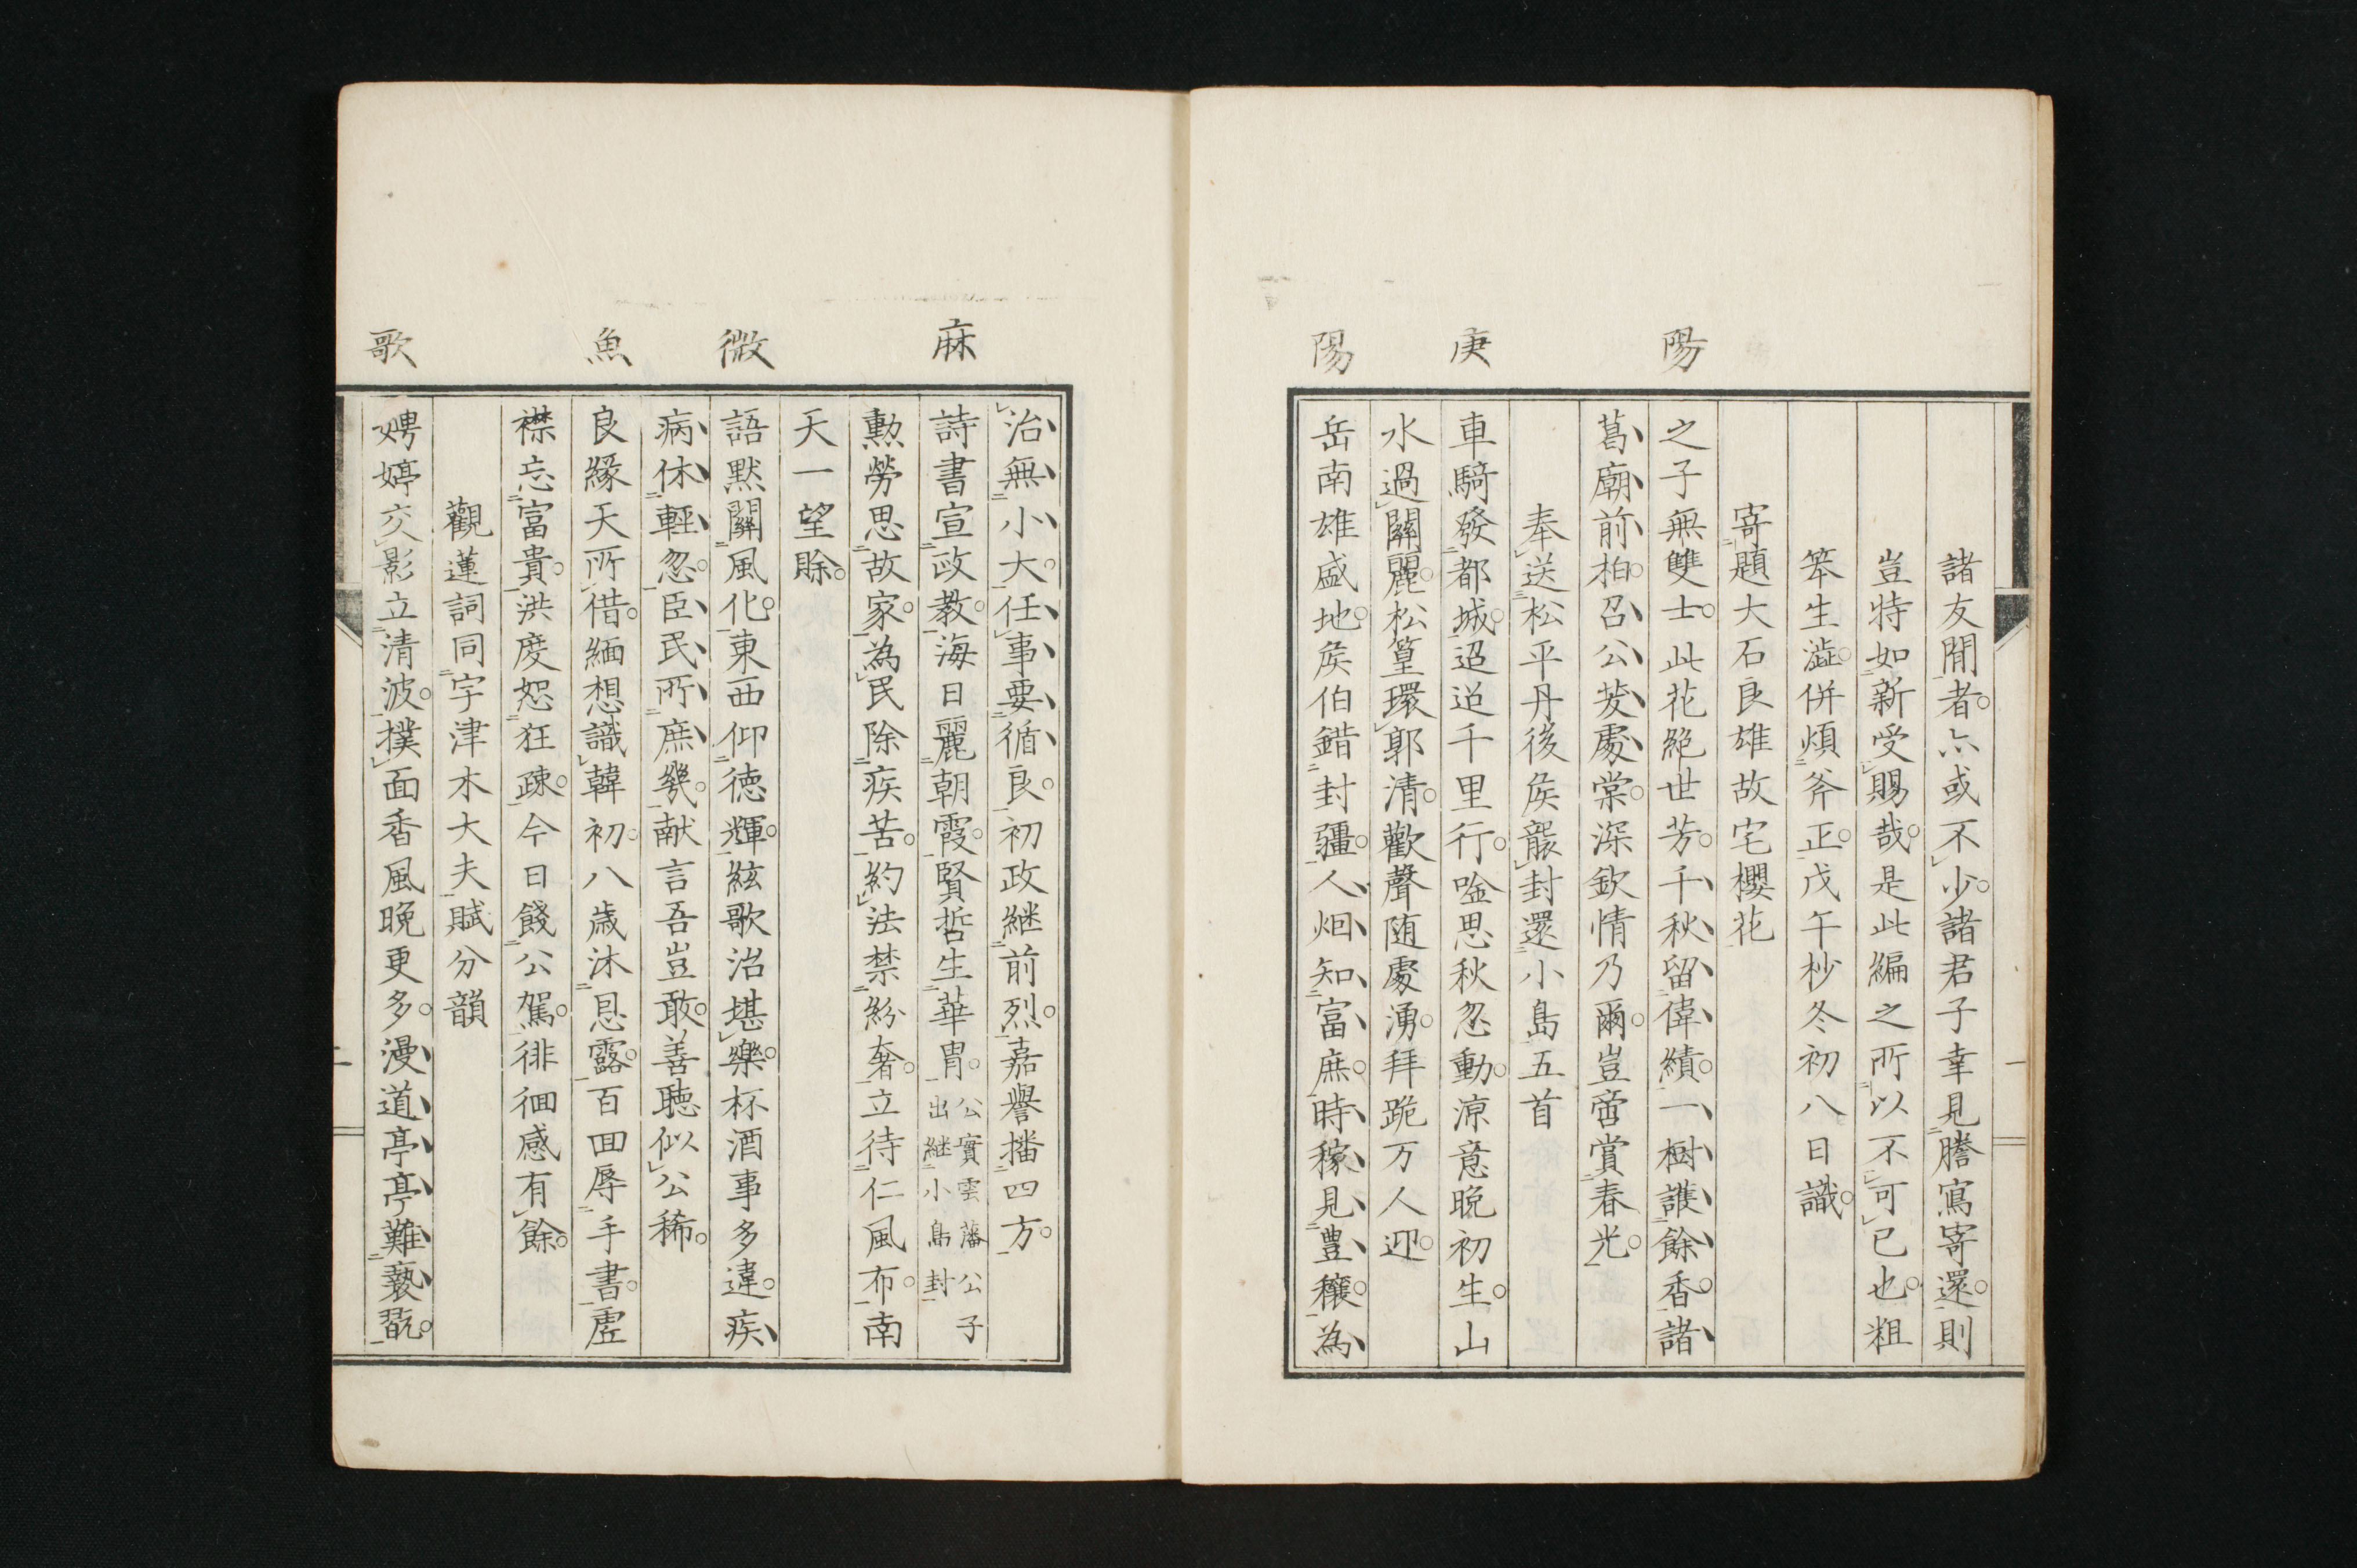 諸友間者亦或不少諸君子幸見謄寫寄還則
豈特如新受賜哉是此編之所以不可已也粗
笨生澁併煩斧正戊午杪冬初八日識
寄題大石良雄故宅櫻花
陽
之子無雙士此花絶世芳千秋留偉績一樹護餘香諸
葛廟前柏召公茇處棠深欽情乃爾豈啻賞春光
奉送松平丹後矦襲封還小島五首
庚
車騎發都城迢迢千里行唫思秋忽動凉意晩初生山
水過關麗松篁環郭清歡聲随處湧拜跪万人迎
陽
岳南雄盛地矦伯錯封疆人烟知富庶時稼見豊穰為
治無小大任事要循良初政継前烈嘉譽播四方
麻
詩書宣政教海日麗朝霞賢哲生華胄公實雲藩公子出継小島封
勲勞思故家為民除疾苦約法禁紛奢立待仁風布南
天一望賒
微
語黙關風化東西仰徳輝絃歌治堪樂杯酒事多違疾
病休輕忽臣民所庶幾献言吾豈敢善聴似公稀
魚
良緣天所借緬想識韓初八歳沐恩露百囬辱手書虚
襟忘富貴洪度恕狂疎今日餞公駕徘徊感有餘
觀蓮詞同宇津木大夫賦分韻
歌
娉婷交影立清波撲面香風晩更多漫道亭亭難褻翫
一
二